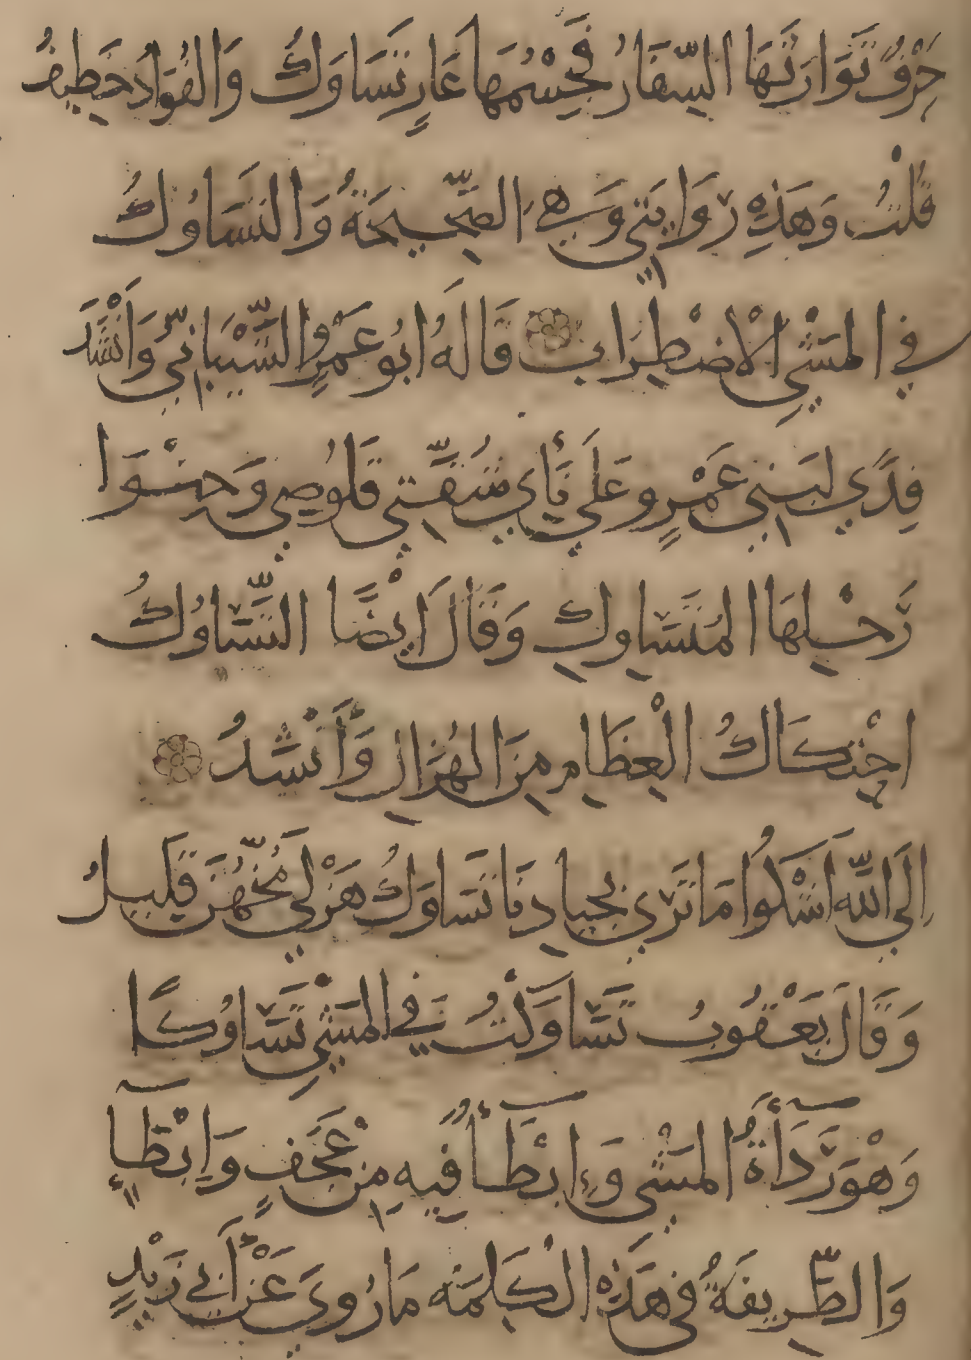 حَرْفٌ تَوَارَثَهَا السِّفَارُ فَجِسْمُهَا عَارٍ تَسَاوَكُ وَالفُؤَادُ خَطِيفُ
قُلْتُ وَهَذِهِ رِوَايَتِي وَهِيَ الصَّحِيحَةُ وَالتَّسَاوُكُ
فِي المَشْيِ الْاضْطِرَابُ قَالَهُ ابُو عَمْرٍو الشَّيْبَانِيُّ وَأَنْشَدَ
فِدًي لِبَنِي عَمْرٍو عَلَي نَأْيِ شُقَّتِي قَلُوصِي وَحِنْوَا
رَحْلِهَا المُتَسَاوِكِ وَقَالَ اَيْضًا التَّسَاوُكُ
احْتِكَاكُ الْعِظَامِ مِنَ الهُزَالِ وَأَنْشَدُ
اِلَي اللَّهِ اَشْكُوا مَا تَرَي بِجِيَادِنَا تَسَاوَكُ هَزْلَي مُخُّهُنَّ قَلِيلُ
وَقَالَ يَعْقُوبُ تَسَاوَكْتُ فِي المَشْيِ تَسَاوُكًا
وَهْوَ رَدَأَةُ المَشْيِ وَإِبْطَأٌ فِيهِ مِنْ عَجَفٍ وَإِبْطَآءٍ
وَالطَّرِيفَةُ فِي هَذِهِ الكَلِمَةِ مَا رُوِيَ عَنْ أَبِي زَيْدٍ